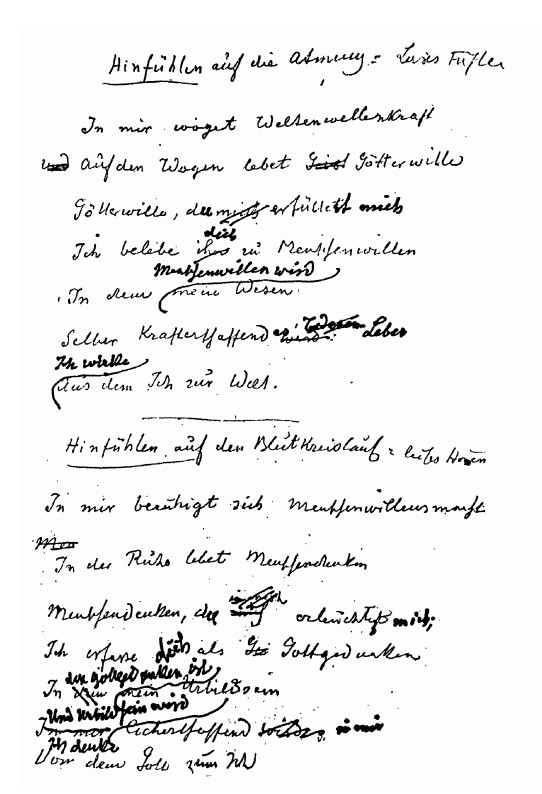 Hinfühlen auf die Atmung = Leises Fühlen
In mir woget Weltenwellenkraft
und Auf den Wogen lebet Geist Götterwille
Götterwille, du mich erfüllest mich
dich
Ich belebe ihn zu Menschenwillen
Menschenwillen wird
In dem mein Wesen.
Selber Krafterschaffend es wird. Wesen Leber
Ich wirke
Aus dem Ich zur Welt.
Hinfühlen auf den Blutkreislauf = leises Hören
In mir beruhigt sich Menschenwillensmacht
Men
In der Ruhe lebet Menschendenken
Menschendenken, du erleuchtest mich;
Ich erfasse dich als Ge Gottgedanken
der Gottgedanken ist
In dem mein Urbildsein
Und Urbildsein wird
In mir Lichterschaffend in mir
Ich denke
Von dem Gott zum Ich